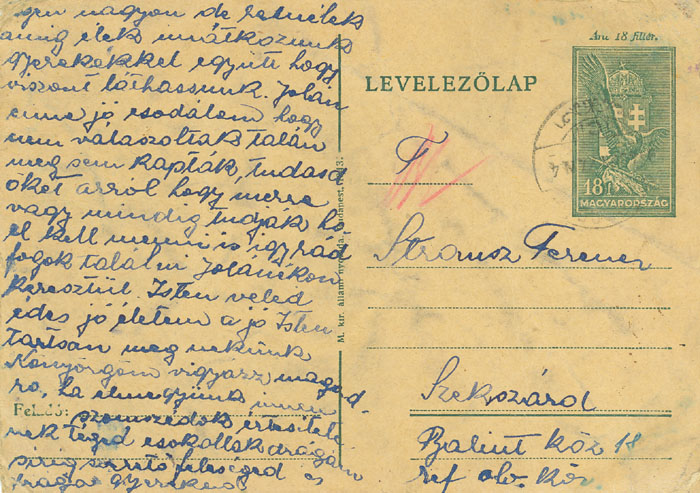 igen nagyon de remélek
amig élek imátkozunk
gyerekekkel együtt hogy
viszont láthassunk. Jolán
énna jó csodálom hogy
nem válaszoltak talán
meg sem kapták, tudasd
őket arról hogy merre
vagy mindig tudják ho
el kell menni is igy rád
fogok találni Jolánékon
keresztül. Isten veled
édes jó életem a jó Isten
tartson meg nekünk
Könyörgöm vigyázz magad-
ra, ha elmegyünk innen
Feladó: szomszédok értesíte
nek téged csokollak drágám
sirig szerető feleséged és
árága gyerekeid
M. kir. állami nyomda, Budapest.
LEVELEZŐLAP
Ára 18 fillér.
18f
MAGYARORSZÁG
T
Strausz Ferenc
Szekszárd
Bálint köz 18
ref olv. kör.